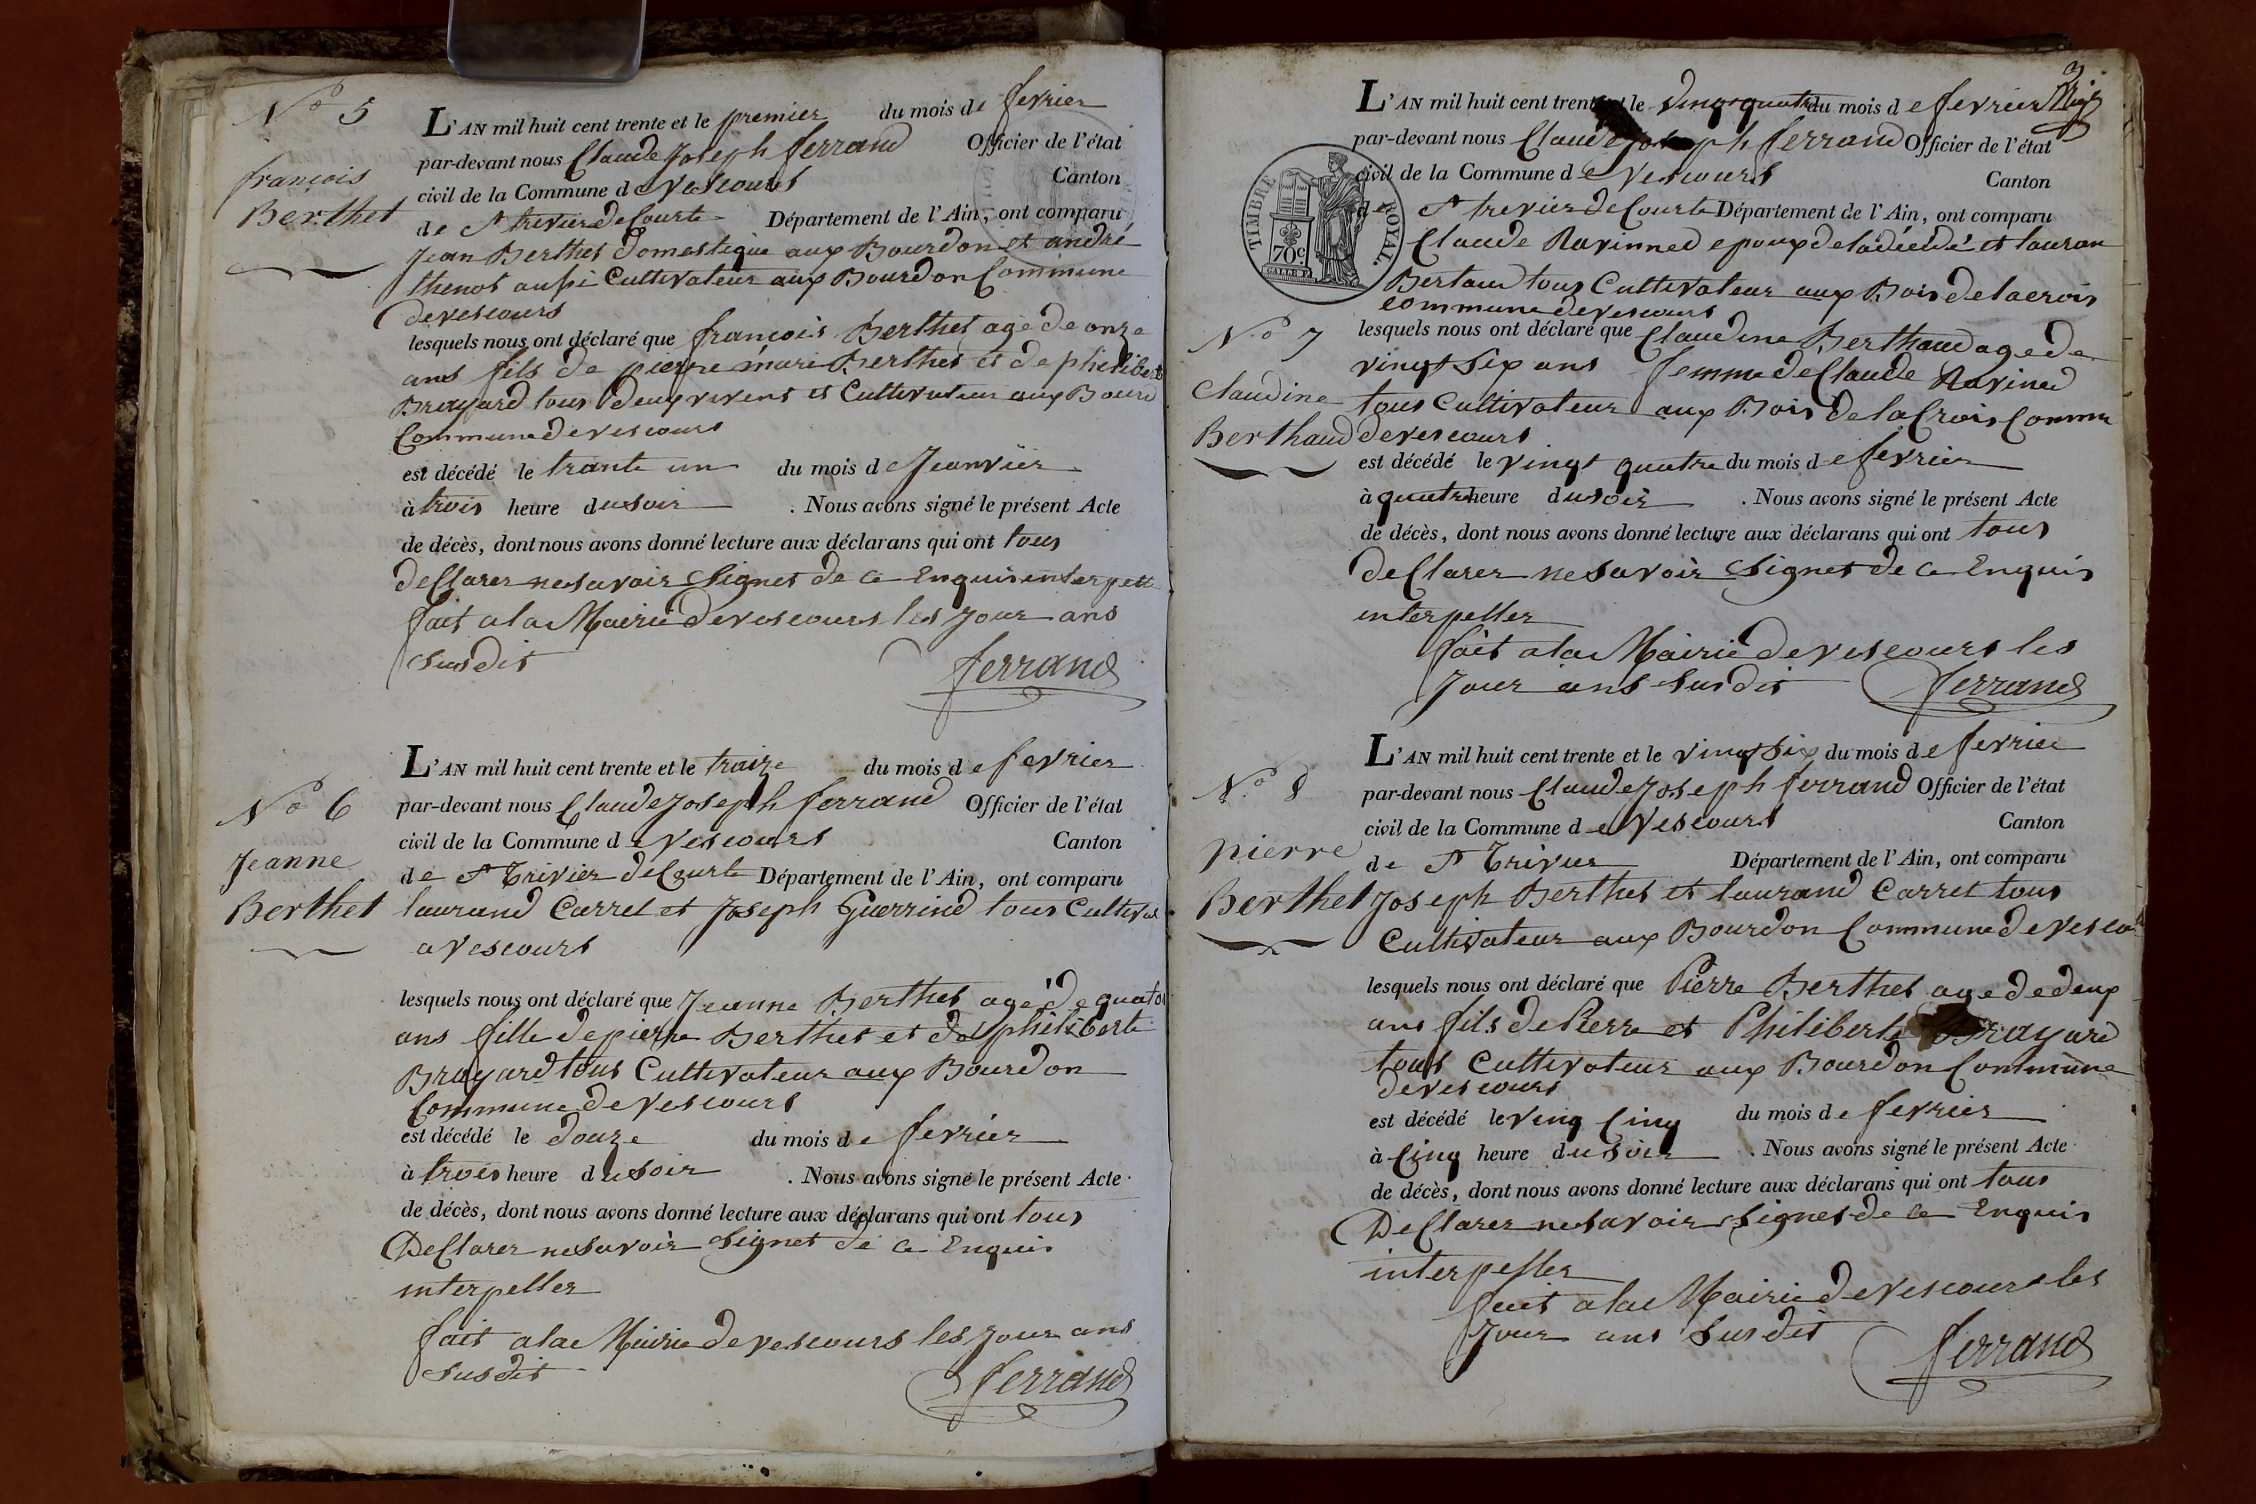 N° 5
françois
Berthet
L'AN mil huit cent trente et le premier du mois de fevrier
par-devant nous Claude Joseph ferrand Officier de l'état
civil de la Commune de vescours Canton
de St trivier de Courte Département de l'Ain, ont comparu
Jean Berthet Domestique aux Bourdon et andré
thenot aussi Cultivateur aux Bourdon Commune
de vescours
lesquels nous ont déclaré que françois Berthet agé de onze
ans fils de pierre marie Berthet et de philiberte
Brayard tous deux vivens et Cultivateur aux Bourd
Commune de vescours
est décédé le trante un du mois de Jeanvier
à trois heure du soir . Nous avons signé le présent Acte
de décès, dont nous avons donné lecture aux déclarans qui ont tous
deClarer ne savoir Signet de ce Enquis interpell
fait a la Mairie de vescours les Jour ans
Susdit
ferrand
N° 6
Jeanne
Berthet
L'AN mil huit cent trente et le traize du mois de fevrier
par-devant nous Claude Joseph ferrand Officier de l'état
civil de la Commune de Vescours Canton
de St Trivier de Courte Département de l'Ain, ont comparu
laurand Carret et Joseph Guerrind tous Cultivat
a vescours
lesquels nous ont déclaré que Jeanne Berthet agé de quator
ans fille de pierre Berthet et de philiberte
Brayard tous Cultivateur aux Bourdon
Commune de Vescours
est décédé le douze du mois de fevrier
à trois heure du soir . Nous avons signé le présent Acte
de décès, dont nous avons donné lecture aux déclarans qui ont tous
DeClarer ne savoir Signet de ce Enquis
interpeller
fait a la Mairie de vescours les Jour ans
Susdit
ferrand
3
L'AN mil huit cent trente et le vingt quatre du mois de fevrier
par-devant nous Claude Joseph ferrand Officier de l'état
civil de la Commune de Vescours Canton
de St trevier de Courte Département de l'Ain, ont comparu
TIMBRE ROYAL.
70c.
Claude Ravinned epoux de la déédé et lauran
Bertaud tous Cultivateur aux Bois de la crois
commune de vescours
N° 7
Claudine
Berthaud
lesquels nous ont déclaré que Claudine Berthaud age de
vingt six ans femme de Claude Ravined
tous Cultivateur aux Bois de la Crois Commu
de vescours
est décédé le vingt quatre du mois de fevrier
à quatre heure du soir . Nous avons signé le présent Acte
de décès, dont nous avons donné lecture aux déclarans qui ont tous
deClarer ne savoir Signet de ce Enquis
interpeller
fait a la Mairie de vescours les
Jour ans Susdit
ferrand
N° 8
pierre
Berthet
L'AN mil huit cent trente et le vingt Six du mois de fevrier
par-devant nous Claude Joseph ferrand Officier de l'état
civil de la Commune de Vescours Canton
de St Trivier Département de l'Ain, ont comparu
Joseph Berthet et laurand Carret tous
Cultivateur aux Bourdon Commune de Vescou
lesquels nous ont déclaré que Pierre Berthet age de deux
ans fils de Pierre et Philiberte Brayard
tous Cultivateur aux Bourdon Commune
de vescours
est décédé le ving Cinq du mois de fevrier
à Cinq heure du soir . Nous avons signé le présent Acte
de décès, dont nous avons donné lecture aux déclarans qui ont tous
DeClarer ne savoir Signet de ce Enquis
interpeller
fait a la Mairie de Vescours les
Jour ans Susdit
ferrand